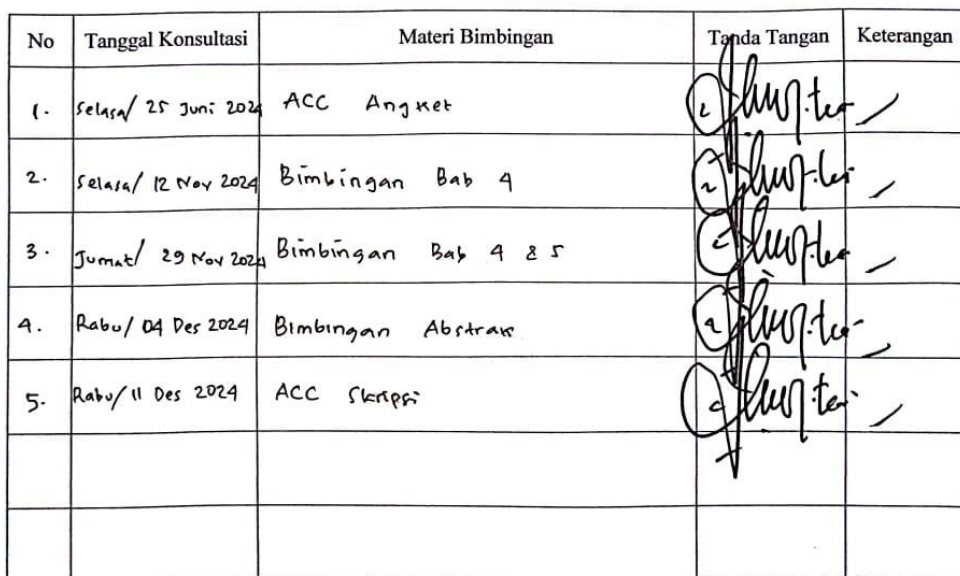 No Tanggal Konsultasi Materi Bimbingan Tanda Tangan Keterangan
1. Selasa/ 25 Juni 2024 ACC Angket
2. Selasa/ 12 Nov 2024 Bimbingan Bab 4
3. Jumat/ 29 Nov 2024 Bimbingan Bab 4 & 5
4. Rabu/ 04 Des 2024 Bimbingan Abstrak
5. Rabu/ 11 Des 2024 ACC Skripsi